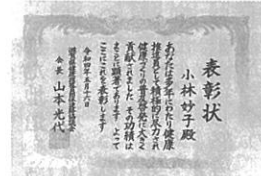 表彰状
小林妙子殿
あなたは多年にわたり健康
推進員として積極的に尽力され
健康づくりの普及啓発に大きく
貢献されました その功績は
まことに顕著であります よって
ここにこれを表彰します
令和四年五月十八日
会長 山本光代